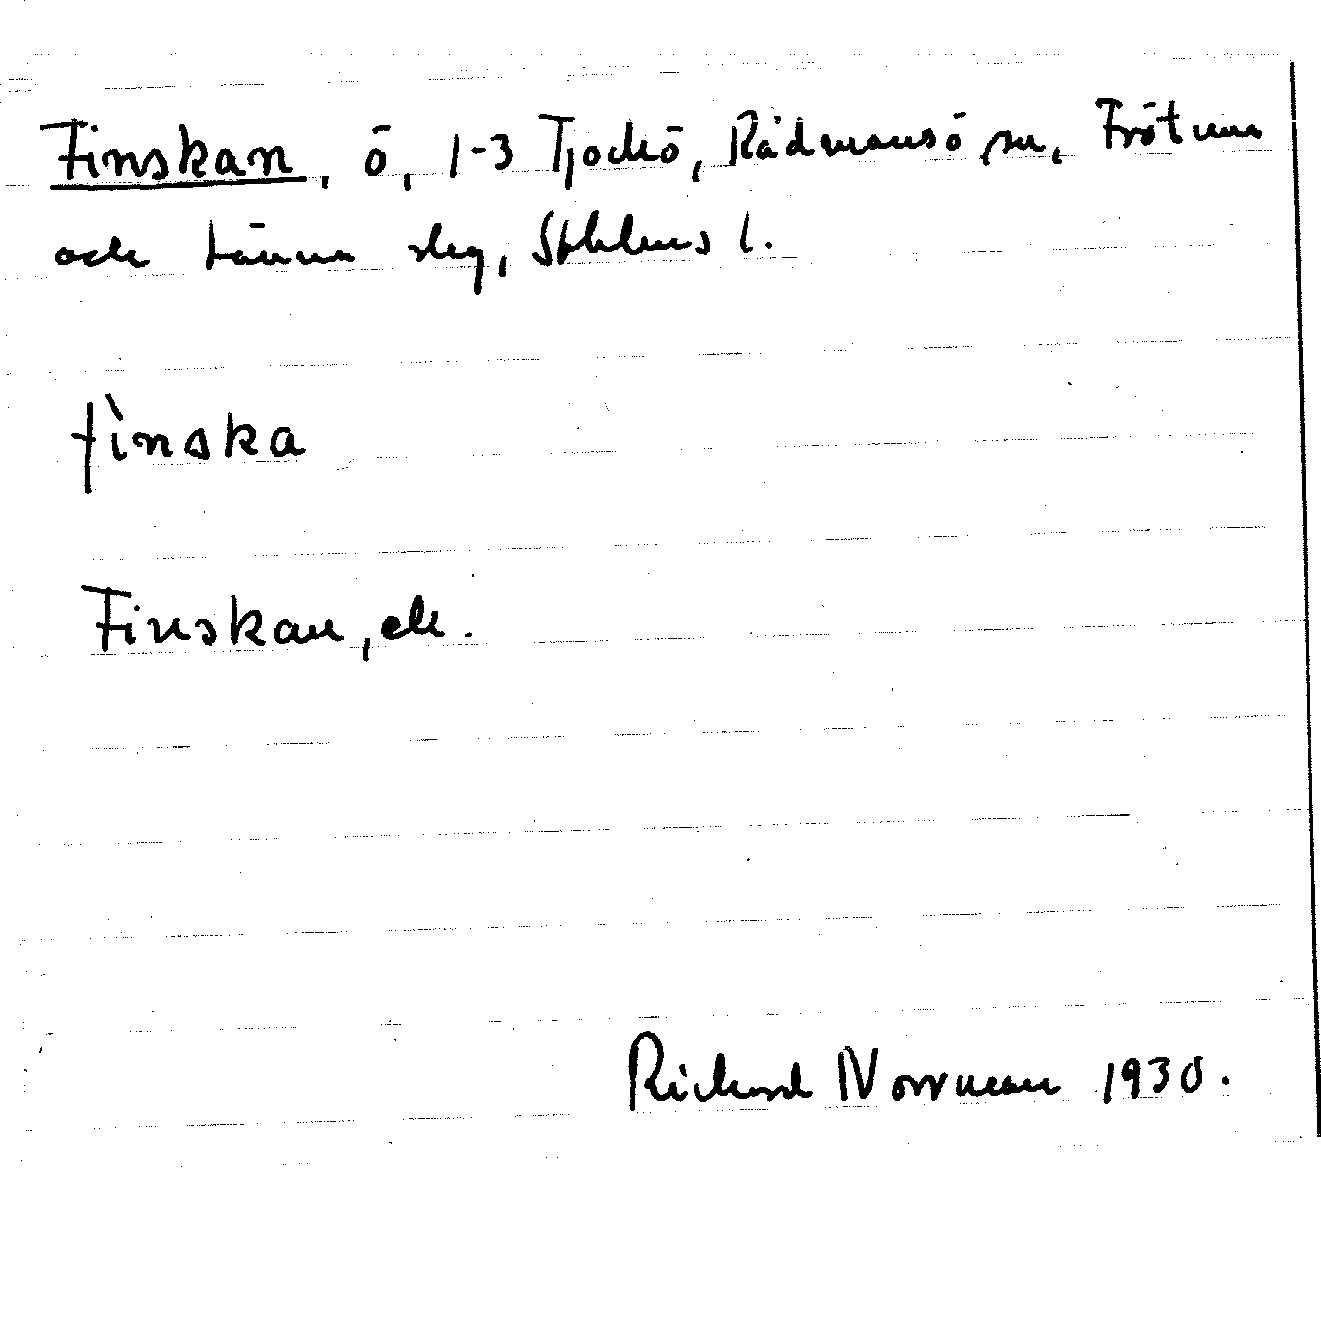 Finskan, ö, 1-3 Tjockö, Rådmansö sn, Frötuna
och Länna slg, Sthlms l.
fìnska
Finskan, ek.
Rickard Norrman 1930.